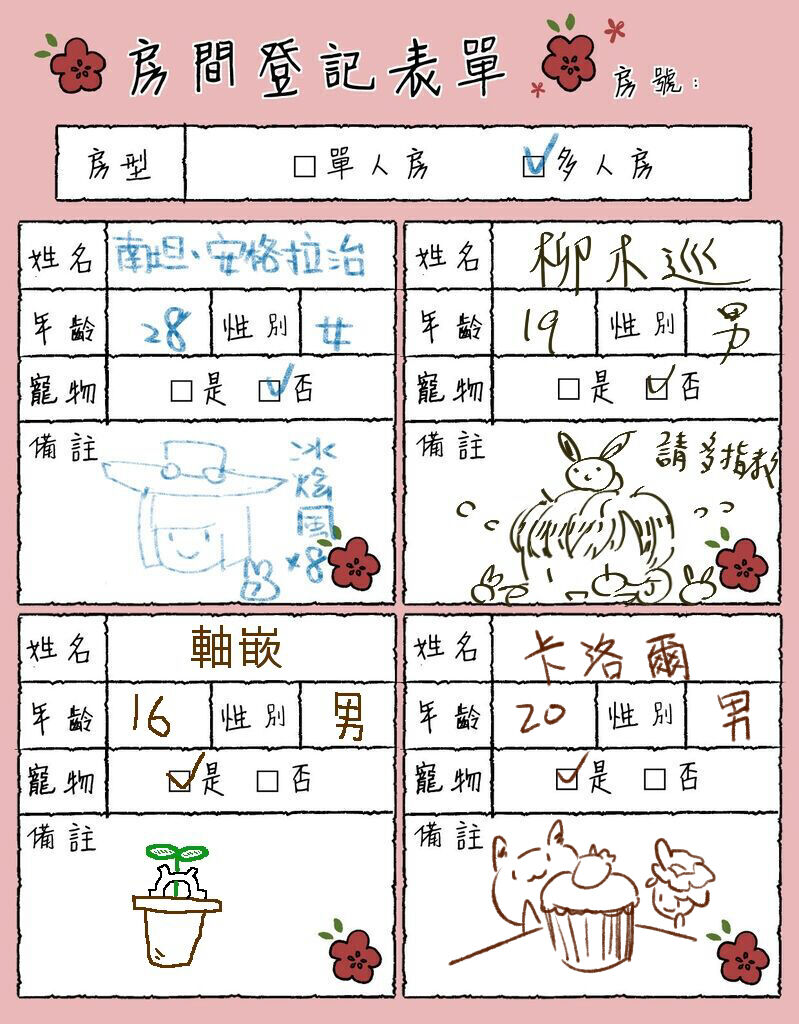 房間登記表單 房號：
房型 □單人房 ☑多人房
姓名 南坦、安格拉治
年齡 28 性別 女
寵物 □是 ☑否
備註 冰炫風×8
姓名 柳木巡
年齡 19 性別 男
寵物 □是 ☑否
備註 請多指教
姓名 軸嵌
年齡 16 性別 男
寵物 ☑是 □否
備註
姓名 卡洛爾
年齡 20 性別 男
寵物 ☑是 □否
備註